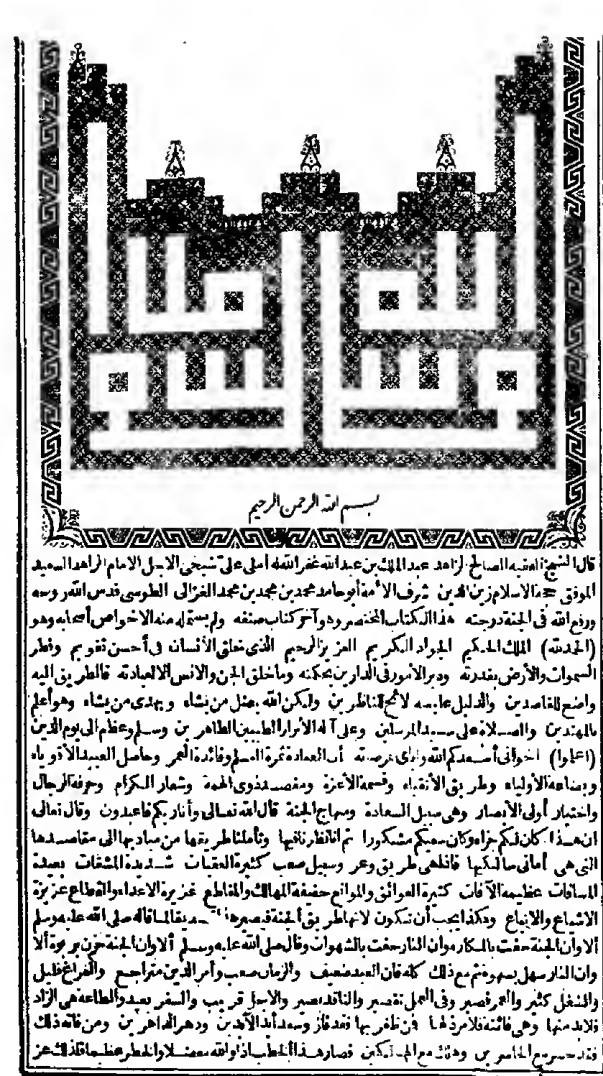 ما شاء الله
بسم الله الرحمن الرحيم
قال الشيخ الفقيه الصالح الزاهد عبد الملك بن عبد الله غفر الله له أملى على شيخى الاجل الامام الزاهد السعيد
الموفق حجة الاسلام زين الدين شرف الأمة أبو حامد محمد بن محمد بن محمد الغزالى الطوسى قدس الله روحه
ورفع الله فى الجنة درجته هذا الكتاب المختصر وهو آخر كتاب صنفه ولم يستمله منه الا خواص أصحابه وهو
(الحمد لله) الملك الحكيم الجواد الكريم العزيز الرحيم الذى خلق الأنسان فى أحسن تقويم وفطر
السموات والأرض بقدرته ودبر الأمور فى الدارين بحكمته وما خلق الجن والانس الا لعبادته فالطريق اليه
واضح للقاصدين والدليل عليه لائح للناظرين ولكن الله يضل من يشاء ويهدى من يشاء وهو أعلم
بالمهتدين والصلاة على سيد المرسلين وعلى آله الأبرار الطيبين الطاهرين وسلم وعظم الى يوم الدين
(اعلموا) اخوانى أسعدكم الله واياى بمرضاته أن العبادة ثمرة العلم وفائدة العمر وحاصل العبيد الأقوياء
وبضاعة الأولياء وطريق الأتقياء وقسمة الأعزة ومقصد ذوى الهمة وشعار الكرام وحرفة الرجال
واختيار أولى الأبصار وهى سبيل السعادة ومنهاج الجنة قال الله تعالى وأنا ربكم فاعبدون وقال تعالى
ان هذا كان لكم جزاء وكان سعيكم مشكورا ثم انا نظرنا فيها وتأملنا طريقها من مباديها الى مقاصدها
التى هى أمانى سالكيها فاذا هى طريق وعر وسبيل صعب كثيرة العقبات شديدة المشقات بعيدة
المسافات عظيمة الآفات كثيرة العوائق والموانع خفية المهالك والمقاطع غزيرة الاعداء والقطاع عزيزة
الاشياع والاتباع وهكذا يجب أن تكون لانها طريق الجنة فيصير هذا تصديقا لما قاله صلى الله عليه وسلم
ألا وان الجنة حفت بالمكاره وان النار حفت بالشهوات وقال صلى الله عليه وسلم ألا وان الجنة حزن بربوة ألا
وان النار سهل بسهوة ثم مع ذلك كله فان العبد ضعيف والزمان صعب وأمر الدين متراجع والفراغ قليل
والشغل كثير والعمر قصير وفى العمل تقصير والناقد بصير والاجل قريب والسفر بعيد والطاعة هى الزاد
فلا بد منها وهى فائتة فلا مرد لها فمن ظفر بها فقد فاز وسعد أبد الآبدين ودهر الداهرين ومن فاته ذلك
فقد خسر مع الخاسرين وهلك مع الهالكين فصار هذا الخطب اذا والله معضلا والخطر عظيما فلذلك عز